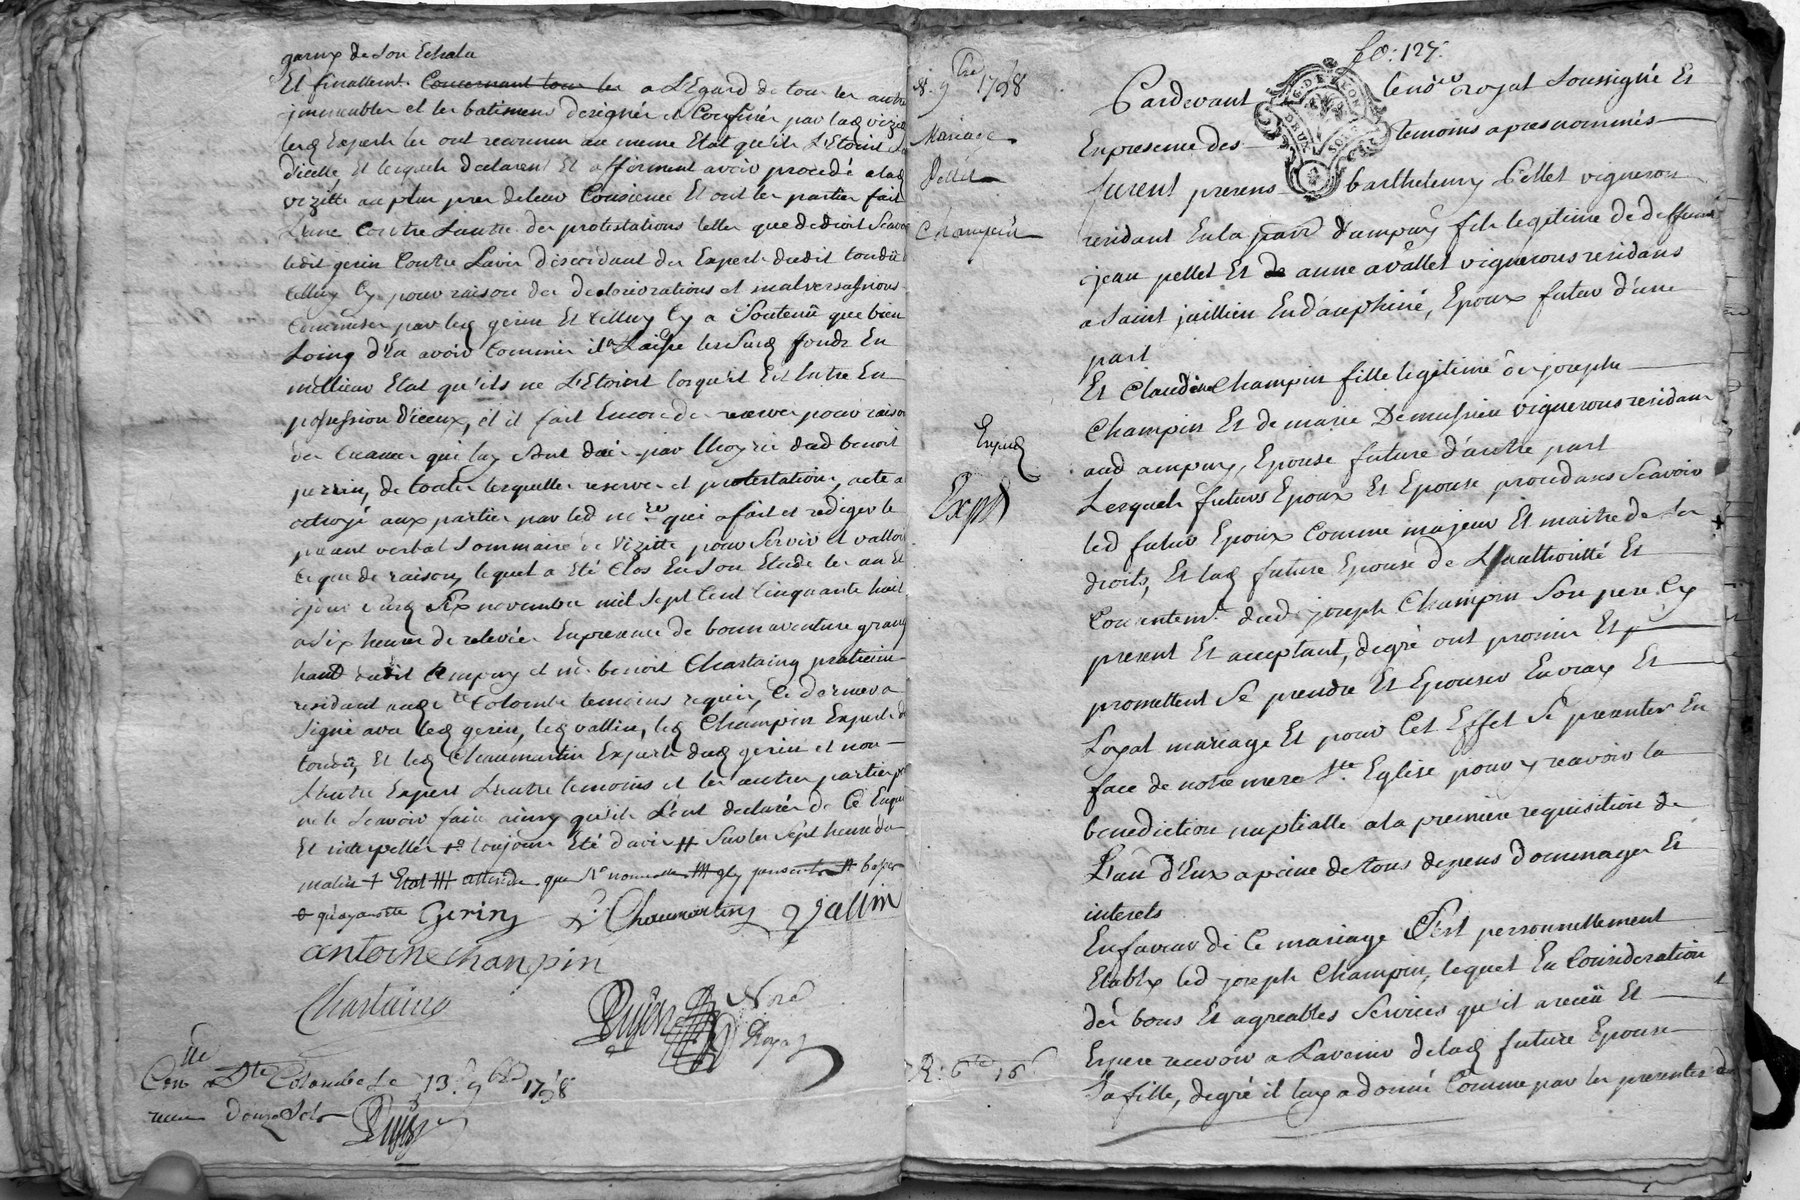 garnx de son Echala
Et finallemt. Concernant tous les a L'Egard de tous les autres
immeubles et les batimens designés et Confinés par lad vizite
lesd Experts les ont reconnu au meme Etat qu'ils L'Etoint
d'icelle Et lesquels declarent Et afferment avoir procedé a lad
vizitte au plus pres de leur Consience Et ont les parties fait
L'une Contre Lautre des protestations telles que de droit Scavoir
ledit gerin Contre Lavis discordant des Experts dudit tondu
Celluy Cy pour raison des deteriorations et malversassions
Commises par led gerin Et Celluy Cy a Soutenû que bien
Loing d'En avoir Commis il a Laissé lesd fonds En
meilleur Etat qu'ils ne L'Etoint lorsqu'il Est Entré En
possession D'iceux, et il fait Encore des reserves pour raison
des qui luy Sont par dud benoit
perrin, de toutes lesquelles reserves et protestations, acte a
octroyé aux parties par led nore. qui a fait et rediger le
present verbal Sommaire de Vizitte pour Servir et valloir
Ce que de raison, lequel a Eté Clos En Son Etude les an Et
jour Susd Six novembre mil Sept Cent Cinquante huit
a Six heures de relevées En presence de bonnaventure grang
hand dudit ampuy et mr. benoit Chastaing praticien
residant aud Ste Colombe temoins requis, Ce dernier a
Signé avec led gerin, led vallin, led Champin Experts de
tondû, Et led Chaumartin Expert dud gerin et non
L'autre Expert L'autre temoins et les autres parties pr
ne le Scavoir faire ainsy qu'ils L'ont declarés de Ce Enquis
Et interpellés toujours Eté d'avis Sur les Sept heures du
matin
qu'ayant Eté Gerin Chaumarting Vallin
antoine chanpin
Chastaing
Dujon Nore
Royal
Conlle a Ste Colombe Le 13e. 9bre 1758
recu Douze Sols
Dujon
fo: 127.
8. 9bre 1758
Mariage
Pellet
Champin
Expied
Exp
Pardevant le nore royal Soussigné Et
En presence des temoins apres nommés
furent presens barthelemy Pellet vigneron
residant En la parr d'ampuy fils legitime de deffunt
jean pellet Et de anne avallet vignerons residans
a Saint juillien En dauphiné, Epoux futur d'une
part
Et Claudine Champin fille legitime de joseph
Champin Et de marie Demussieu vignerons residans
aud ampuy, Epouse future d'autre part
Lesquels futurs Epoux Et Epouse procedans Scavoir
led futur Epoux Comme majeur Et maitre de Ses
droits, Et lad future Epouse de L'authoritté Et
Consentemt. dud joseph Champin Son pere Cy
present Et acceptant, degré ont promis Et
promettent Se prendre Et Epouser En vray Et
Loyal mariage Et pour Cet Effet Se presenter En
face de notre mere Ste. Eglise pour y recevoir la
benediction nuptialle a la premiere requisition de
L'un d'Eux a peine de tous depens dommages Et
interets
En faveur de Ce mariage S'est personnellement
Etably led joseph Champin, lequel En Consideration
des bons Et agreables Services qu'il a recû Et
Espere recevoir a Lavenir de lad future Epouse
Sa fille, degré il luy a donné Comme par les presentes
R. 6e 16